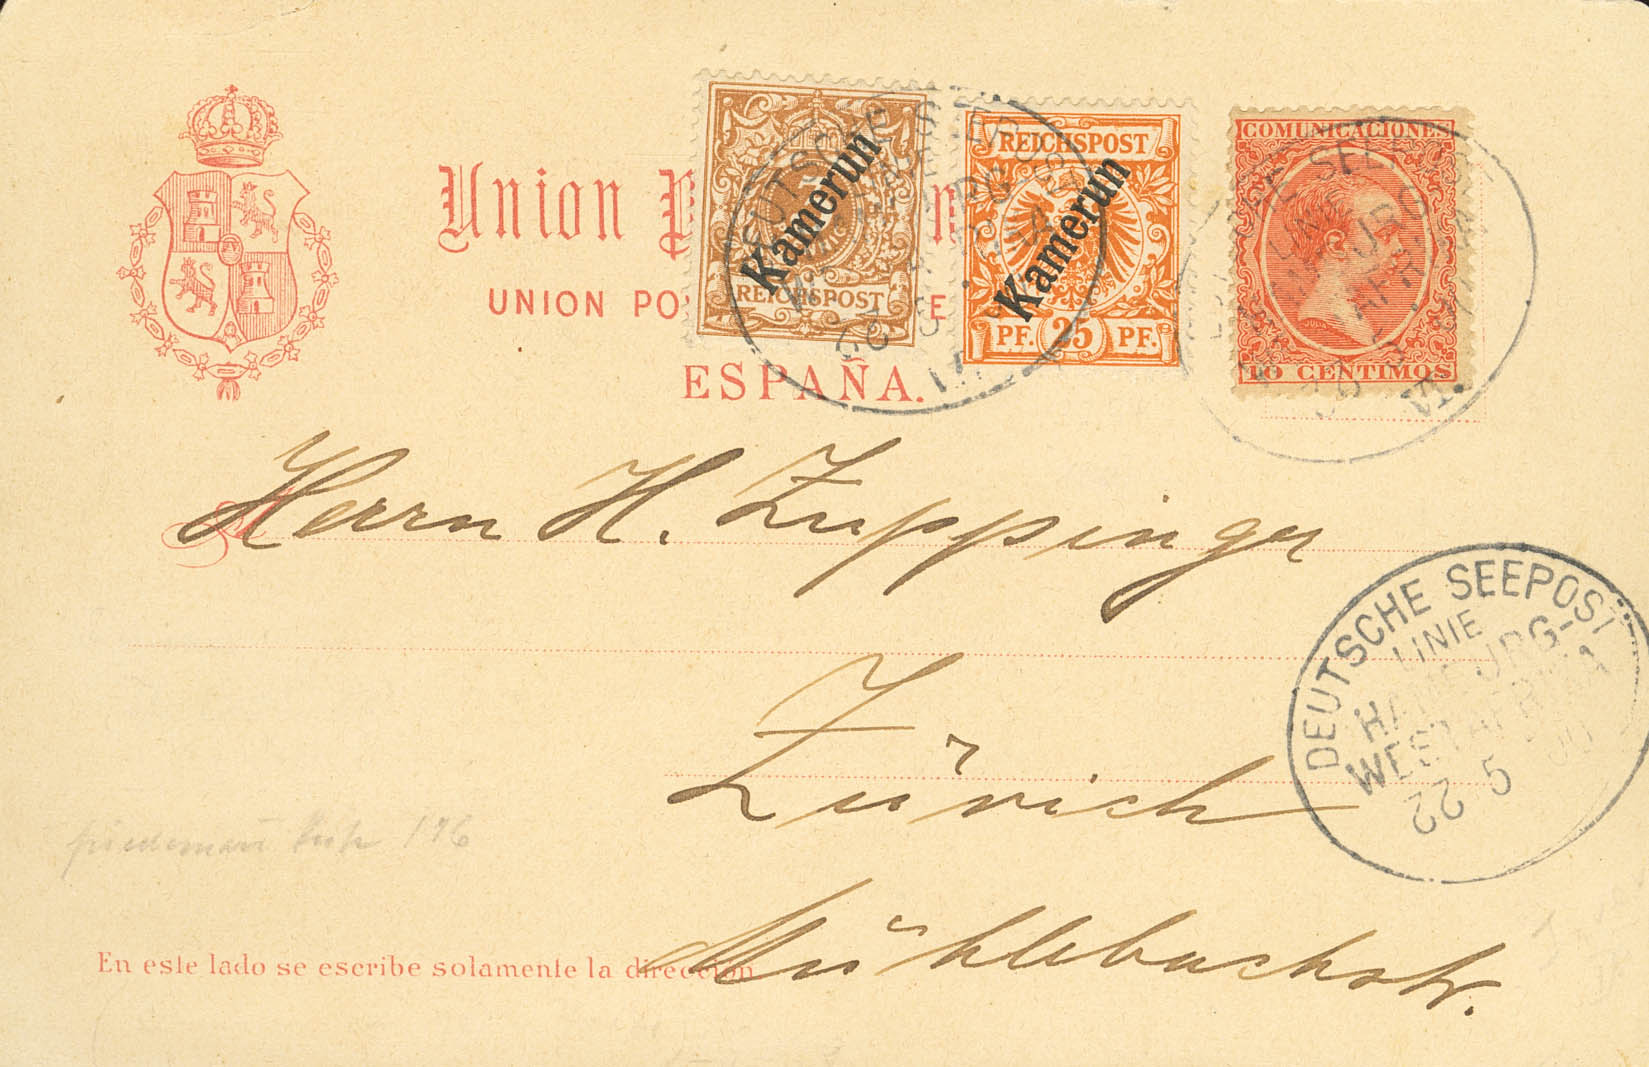 Union P
UNION PO
ESPAÑA.
Kamerun
REICHSPOST
REICHSPOST
Kamerun
PF. 25 PF.
COMUNICACIONES
10 CENTIMOS
VI.
VI.
A
Herrn H. Zuppinger
Zürich
Mühlebachstr.
DEUTSCHE SEEPOST
LINIE
HAMBURG-
WESTAFRIKA
22 5 00
176
En este lado se escribe solamente la dirección